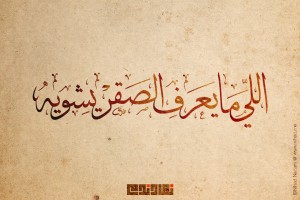 اللي ما يعرف الصقر يشويه